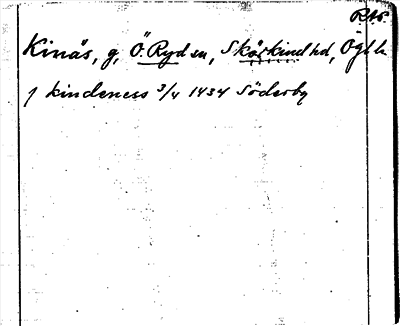 RAp.
Kinås, g, Ö. Ryd sn, Skärkind hd, Ögtl.
J kindeness 3/4 1434 Söderby